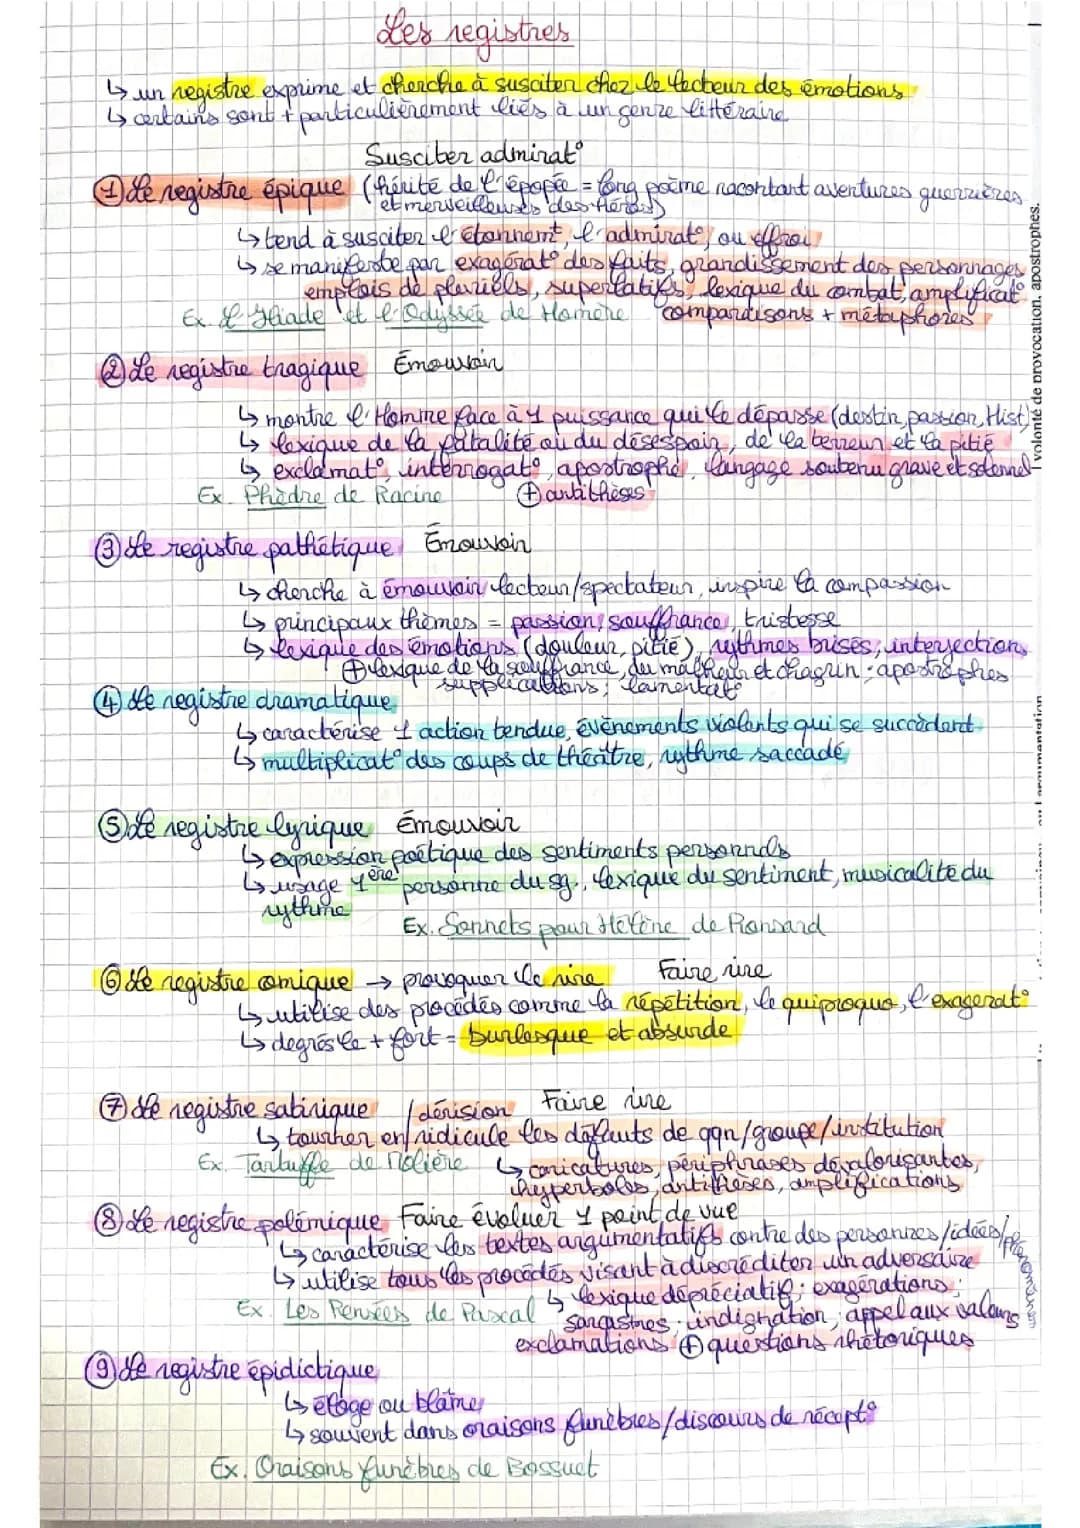 Les registres
↳ un registre exprime et cherche à susciter chez le lecteur des émotions
↳ certains sont + particulièrement liés à un genre littéraire
Susciter admirat°
① Le registre épique (hérité de l'épopée = long poème racontant aventures guerrières
et merveilleuses des Héros)
↳ tend à susciter l'étonnemt, l'admirat°, ou effroi
↳ se manifeste par exagérat° des faits, grandissement des personnages
emplois de pluriels, superlatifs, lexique du combat, amplificat°
Ex. L'Iliade et l'Odyssée de Homère comparaisons + métaphores
② Le registre tragique Émouvoir
↳ montre l'Homme face à 1 puissance qui le dépasse (destin, passion, Hist)
↳ lexique de la fatalité ou du désespoir, de la terreur et la pitié
↳ exclamat°, interrogat°, apostrophe, langage soutenu grave et solennel
Ex. Phèdre de Racine ⊕ antithèses
③ Le registre pathétique Émouvoir
↳ cherche à émouvoir lecteur/spectateur, inspire la compassion
↳ principaux thèmes = passion, souffrance, tristesse
↳ lexique des émotions (douleur, pitié), rythmes brisés, interjection,
⊕ lexique de la souffrance, du malheur et chagrin ; apostrophes
supplications ; lamentat°
④ Le registre dramatique
↳ caractérise 1 action tendue, évènements violents qui se succèdent
↳ multiplicat° des coups de théâtre, rythme saccadé
⑤ Le registre lyrique Émouvoir
↳ expression poétique des sentiments personnels
↳ usage 1ère personne du sg., lexique du sentiment, musicalité du
rythme
Ex. Sonnets pour Hélène de Ronsard
⑥ Le registre comique → provoquer le rire Faire rire
↳ utilise des procédés comme la répétition, le quiproquo, l'exagerat°
↳ degrés le + fort = burlesque et absurde
⑦ Le registre satirique /dérision Faire rire
↳ tourner en ridicule les défauts de qqn/groupe/institution
Ex. Tartuffe de Molière ↳ caricatures, périphrases dévalorisantes,
hyperboles, antithèses, amplifications
⑧ Le registre polémique Faire évoluer 1 point de vue
↳ caractérise les textes argumentatifs contre des personnes/idées/phénomènes
↳ utilise tous les procédés visant à discréditer un adversaire
↳ lexique dépréciatif ; exagérations ;
Ex. Les Pensées de Pascal sarcasmes ; indignation ; appel aux valeurs
exclamations ⊕ questions rhétoriques
⑨ Le registre épidictique
↳ éloge ou blâme
↳ souvent dans oraisons funèbres/discours de récept°
Ex. Oraisons funèbres de Bossuet
volonté de provocation, apostrophes.